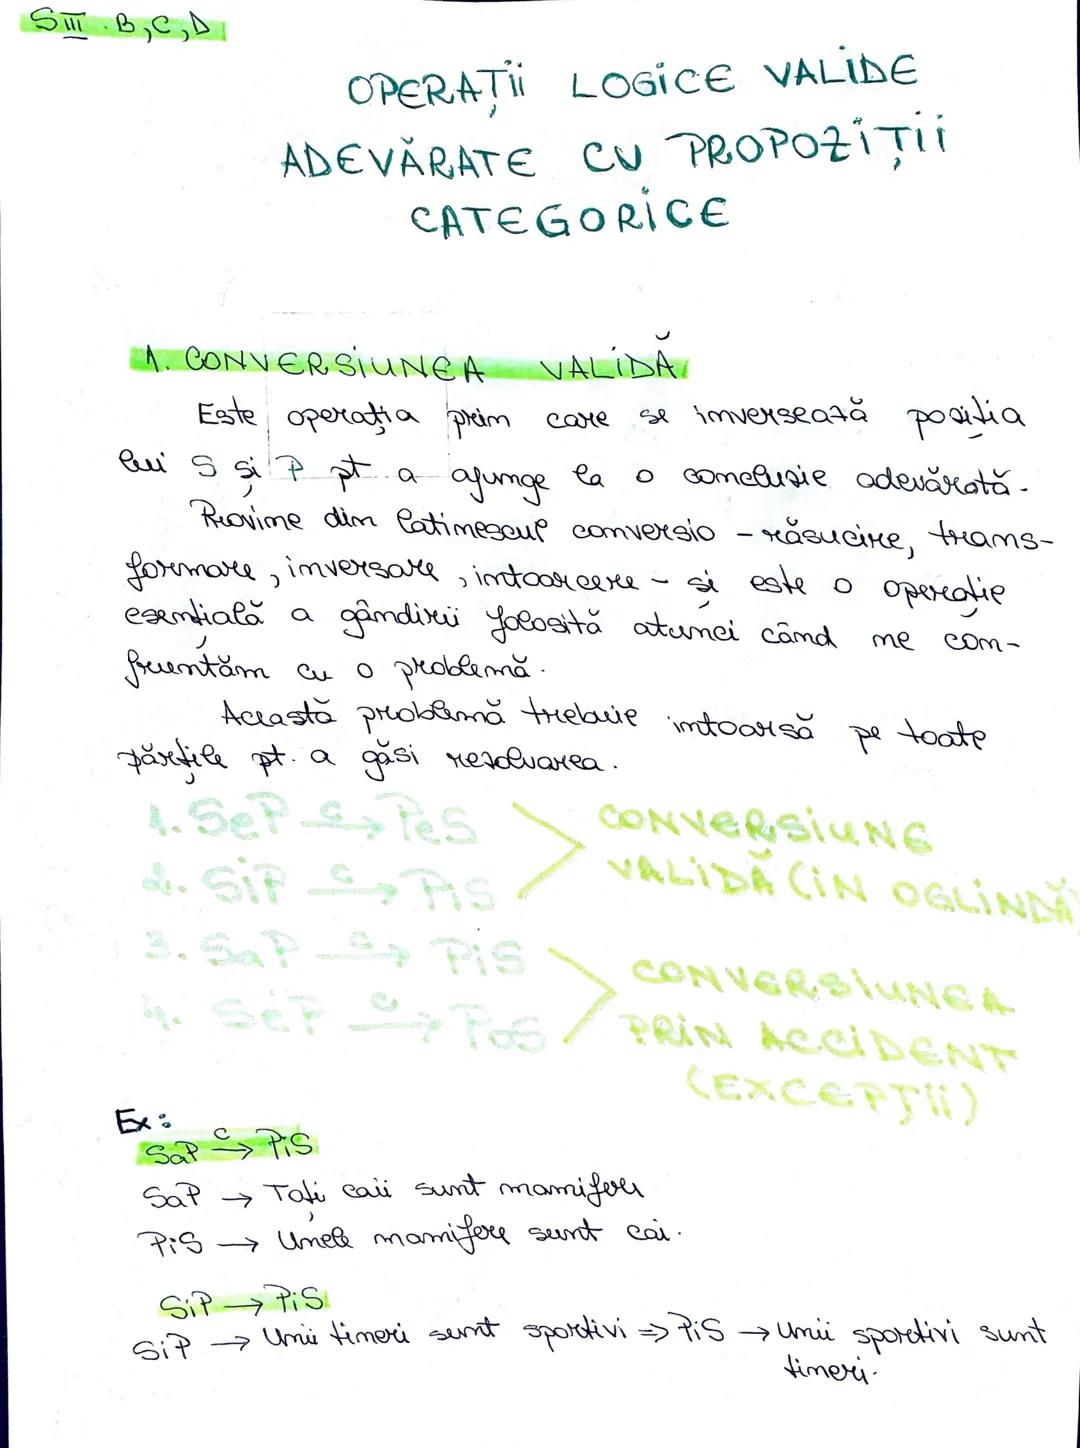 SIII. B,C,D
OPERAȚII LOGICE VALIDE
ADEVĂRATE CU PROPOZIȚII
CATEGORICE
1. CONVERSIUNEA VALIDĂ
Este operația prin care se inversează poziția
lui S și P pt. a ajunge la o concluzie adevărată.
Provine din latinescul conversio - răsucire, trans-
formare, inversare, întoarcere - și este o operație
esențială a gândirii folosită atunci când ne con-
fruntăm cu o problemă.
Această problemă trebuie întoarsă pe toate
părțile pt. a găsi rezolvarea.
1. SeP c→ PeS
CONVERSIUNE
2. SiP c→ PiS
VALIDĂ (ÎN OGLINDĂ
3. SaP c→ PiS
CONVERSIUNEA
4. SeP c→ PoS
PRIN ACCIDENT
(EXCEPȚII)
Ex:
SaP c→ PiS
SaP → Toți caii sunt mamifere
PiS → Unele mamifere sunt cai.
SiP → PiS
SiP → Unii tineri sunt sportivi => PiS → Unii sportivi sunt
tineri.